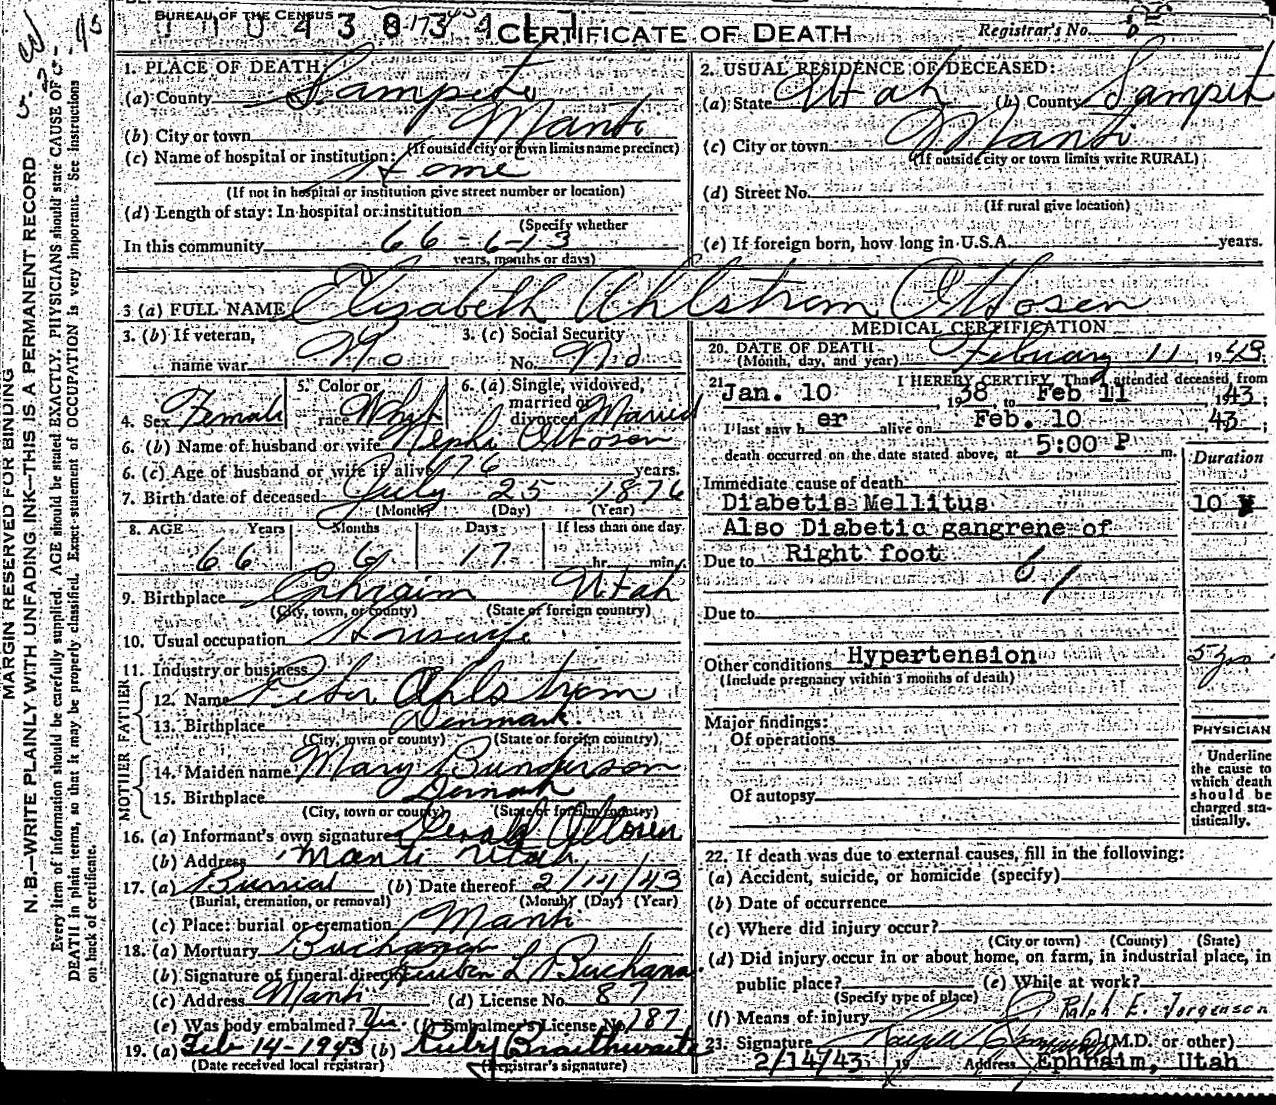 BUREAU OF THE CENSUS
CERTIFICATE OF DEATH
Registrar's No. 6
MARGIN RESERVED FOR BINDING
N. B.—WRITE PLAINLY WITH UNFADING INK—THIS IS A PERMANENT RECORD
Every item of information should be carefully supplied. AGE should be stated EXACTLY. PHYSICIANS should state CAUSE OF
DEATH in plain terms, so that it may be properly classified. Exact statement of OCCUPATION is very important. See instructions
on back of certificate.
1. PLACE OF DEATH:
(a) County Sanpete
(b) City or town Manti
(If outside city or town limits name precinct)
(c) Name of hospital or institution:
Home
(If not in hospital or institution give street number or location)
(d) Length of stay: In hospital or institution
(Specify whether
In this community 66-6-13
years, months or days)
2. USUAL RESIDENCE OF DECEASED:
(a) State Utah (b) County Sampet
(c) City or town Manti
(If outside city or town limits write RURAL)
(d) Street No.
(If rural give location)
(e) If foreign born, how long in U.S.A. years.
3 (a) FULL NAME Elisabeth Ahlstrom Ottosen
3. (b) If veteran,
name war No
3. (c) Social Security
No. No
4. Sex Female
5. Color or
race White
6. (a) Single, widowed,
married or
divorced Married
6. (b) Name of husband or wife Nephi Ottosen
6. (c) Age of husband or wife if alive 76 years.
7. Birth date of deceased July 25 1876
(Month) (Day) (Year)
8. AGE Years Months Days If less than one day
66 6 17 hr. min.
9. Birthplace Ephraim Utah
(City, town, or county) (State or foreign country)
10. Usual occupation Housewife
11. Industry or business
FATHER
12. Name Peter Ahlstrom
13. Birthplace Denmark.
(City, town or county) (State or foreign country)
MOTHER
14. Maiden name Mary Bunderson
15. Birthplace Demark
(City, town or county) (State of foreign country)
16. (a) Informant's own signature Gerald Ottosen
(b) Address Manti Utah
17. (a) Burrial (b) Date thereof 2/14/43
(Burial, cremation, or removal) (Month) (Day) (Year)
(c) Place: burial or cremation Manti
18. (a) Mortuary Buchanan
(b) Signature of funeral director Reuben L Buchanan
(c) Address Manti (d) License No. 87
(e) Was body embalmed? Yes. (f) Embalmer's License No. 187
19. (a) Feb 14-1943 (b) Ruby Braithwaite
(Date received local registrar) (Registrar's signature)
MEDICAL CERTIFICATION
20. DATE OF DEATH
(Month, day, and year) February 11, 1943;
21. I HEREBY CERTIFY, That I attended deceased from
Jan. 10 1938 to Feb 11 1943;
I last saw h er alive on Feb. 10 43;
death occurred on the date stated above, at 5:00 P m.
Duration
Immediate cause of death
Diabetis Mellitus 10 Y
Also Diabetic gangrene of
Due to Right foot
61
Due to
Other conditions Hypertension 5 yrs
(Include pregnancy within 3 months of death)
Major findings:
Of operations
Of autopsy
PHYSICIAN
Underline
the cause to
which death
should be
charged sta-
tistically.
22. If death was due to external causes, fill in the following:
(a) Accident, suicide, or homicide (specify)
(b) Date of occurrence
(c) Where did injury occur?
(City or town) (County) (State)
(d) Did injury occur in or about home, on farm, in industrial place, in
public place? (e) While at work?
(Specify type of place)
(f) Means of injury Ralph E. Jorgenson
23. Signature (M.D. or other)
2/14/43 19 Address Ephraim, Utah